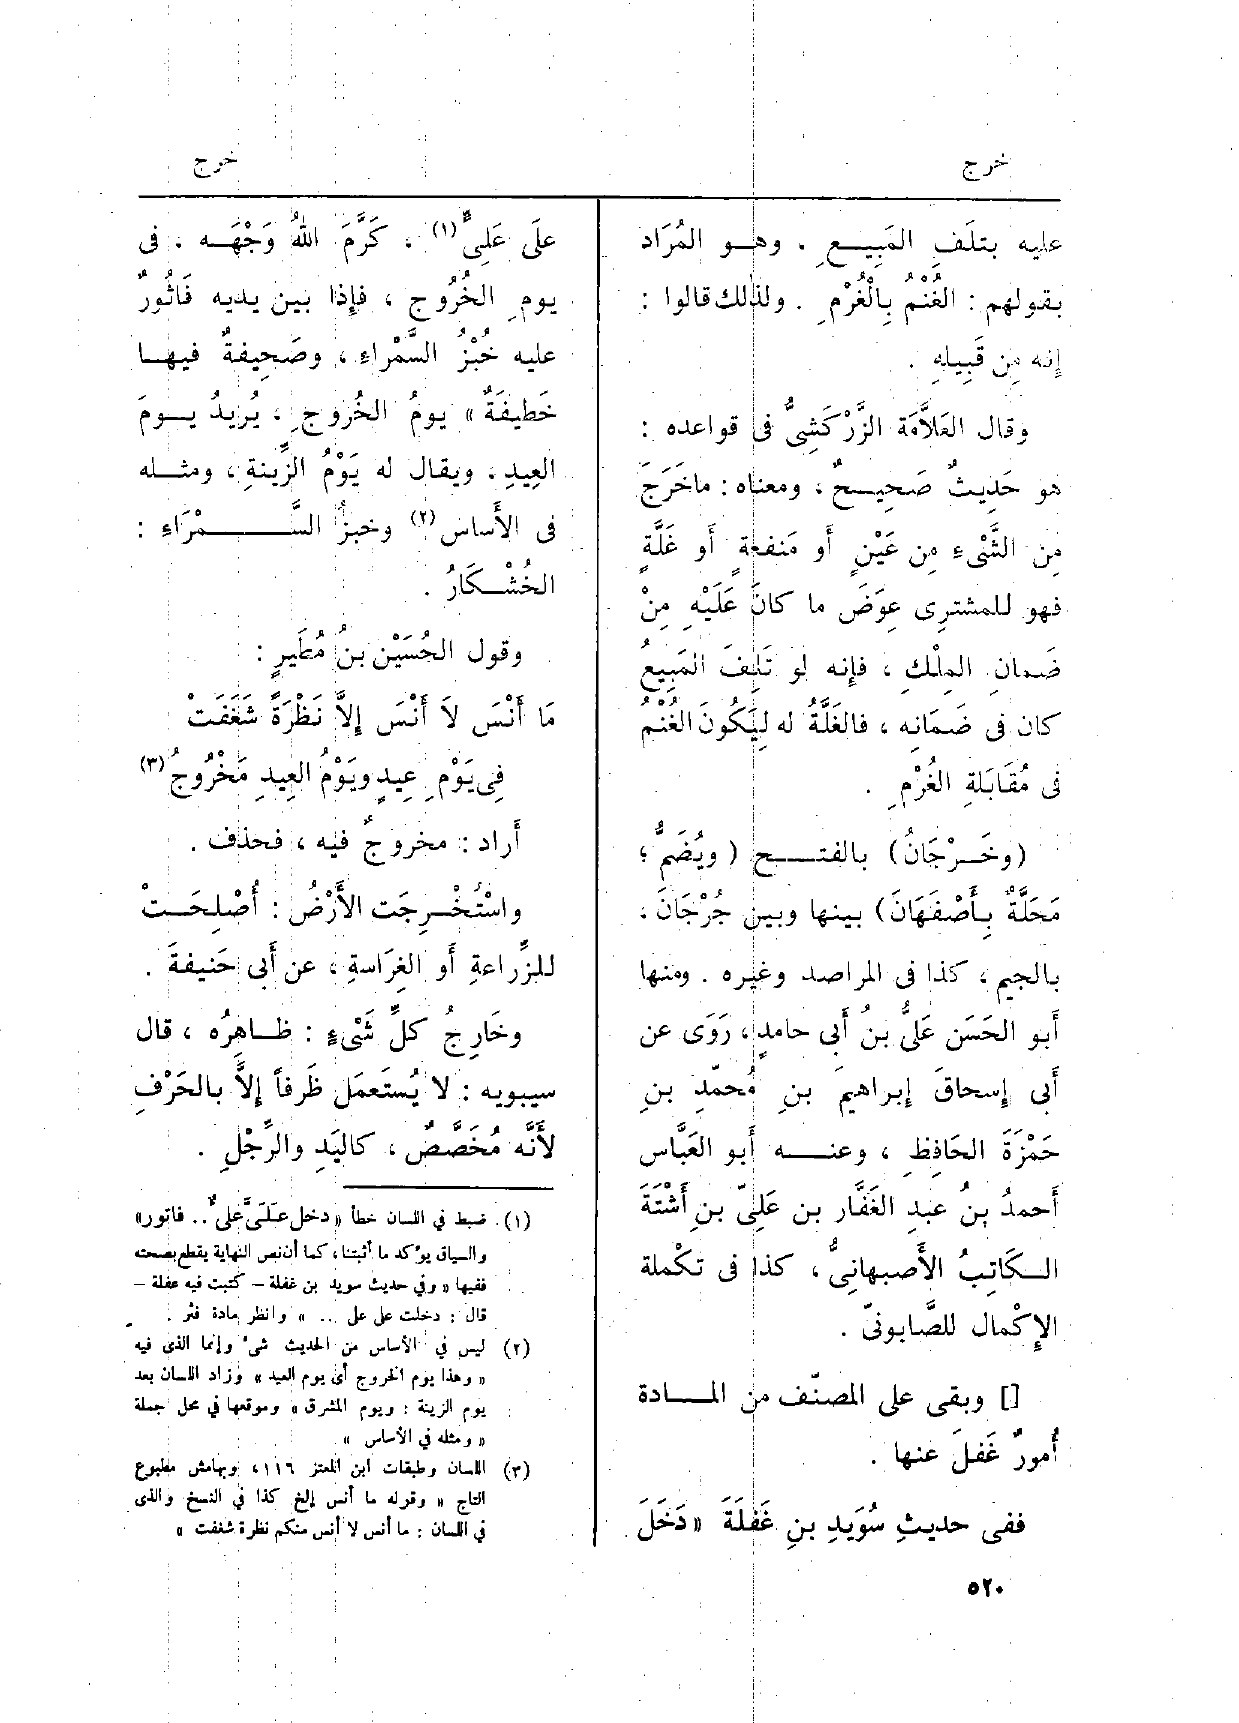 خرج
خرج
عليه بتلَفِ المَبِيـع . وهـو المُرَاد
بقولهم : الغُنْمُ بِالْغُرْمِ . ولذلك قالوا :
إنه مِن قَبِيلهِ .
وقال العَلاَّمَة الزَّرْكَشِىُّ فى قواعده :
هو حَدِيثٌ صَحِيـحٌ ، ومعناه : ماخَرَجَ
مِن الشَّىْءِ مِن عَيْنٍ أَو مَنفعَةٍ أَو غَلَّةٍ
فهو للمشترِى عِوَضَ ما كانَ عَلَيْهِ مِنْ
ضَمانِ المِلْكِ ، فإنه لو تَلِفَ المَبِيعُ
كان فى ضَمَانِه ، فالغَلَّةُ له لِيَكُونَ الغُنْمُ
فى مُقَابَلةِ الغُرْمِ .
(وخَـرْجَانُ) بالفتـــح ( ويُضَمُّ ؛
مَحَلَّةٌ بِأَصْفَهَانَ) بينها وبين جُرْجَانَ ،
بالجيم ، كذا فى المراصد وغيره . ومنها
أَبو الحَسَن عَلىُّ بنُ أَبى حامدٍ ، رَوَى عن
أَبى إسحاقَ إبراهيمَ بنِ مُحمّدِ بنِ
حَمْزَةَ الحَافِظِ ، وعنـــه أَبو العَبَّاس
أَحمدُ بنُ عبدِ الغَفَّار بن عَلِىّ بنِ أَشْتَةَ
الـكَاتِبُ الأَصبهانىُّ ، كذا فى تكْملة
الإِكْمال للصَّابونىّ .
[] وبقى على المصنّف من المـــادة
أُمورٌ غَفَلَ عنها .
ففى حديثِ سُوَيدِ بنِ غَفَلَةَ « دَخَلَ
علَى عَلِىٍّ (١) ، كَرَّمَ اللهُ وَجْهَـه ، فى
يومِ الخُرُوج ، فإِذَا بين يديه فَاثُورٌ
عليه خُبْزُ السَّمْراءِ ، وصَحِيفةٌ فيهـا
خَطِيفَةٌ » يومُ الخُروجِ ، يُرِيدُ يــومَ
العِيدِ ، ويقال له يَوْمُ الزِّينةِ ، ومثـله
فى الأَساس (٢) وخبزُ السَّــــمْرَاءِ :
الخُشْـكَارُ .
وقول الحُسَيْن بنُ مُطَيرٍ :
مَا أَنْسَ لاَ أَنْسَ إِلاَّ نَظْرَةً شَغَفَتْ
فِى يَوْمِ عِيدٍ ويَوْمُ العِيدِ مَخْرُوجُ (٣)
أَراد : مخروجٌ فيه ، فحذف .
واسْتُخْـرِجَت الأَرْضُ : أُصْلِحَـتْ
للزِّراعةِ أَو الغِرَاسةِ ، عن أَبى حَنيفَةَ .
وخَارِجُ كلِّ شَىْءٍ : ظـاهِرُه ، قال
سيبويه : لا يُستَعمَل ظَرفاً إِلاَّ بالحَرْفِ
لأَنَّه مُخَصَّصٌ ، كاليَدِ والرِّجْلِ .
(١) ضبط في اللسان خطأ « دخل عَلَىَّ علىٌّ .. فاثور»
والسياق يؤكد ما أثبتنا ، كما أن نص النهاية يقطع بصحته
ففيها « وفي حديث سويد بن غفلة – كتبت فيه عفلة –
قال : دخلت على على ... » وانظر مادة فثر .
(٢) ليس في الأساس من الحديث شىء وإنما الذى فيه
« وهذا يوم الخروج أى يوم العيد » وزاد اللسان بعد
يوم الزينة : ويوم المشرق » وموقعها في محل جملة
« ومثله في الأساس »
(٣) اللسان وطبقات ابن المعتز ١١٦ ، وبهامش مطبوع
التاج « وقوله ما أنس إلخ كذا في النسخ والذى
في اللسان : ما أنس لا أنس منكم نظرة شغفت »
٥٢٠